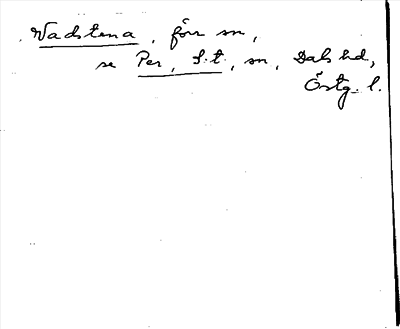 Wadstena, förr sn,
se Per, S:t, sn, Dals hd,
Östg. l.